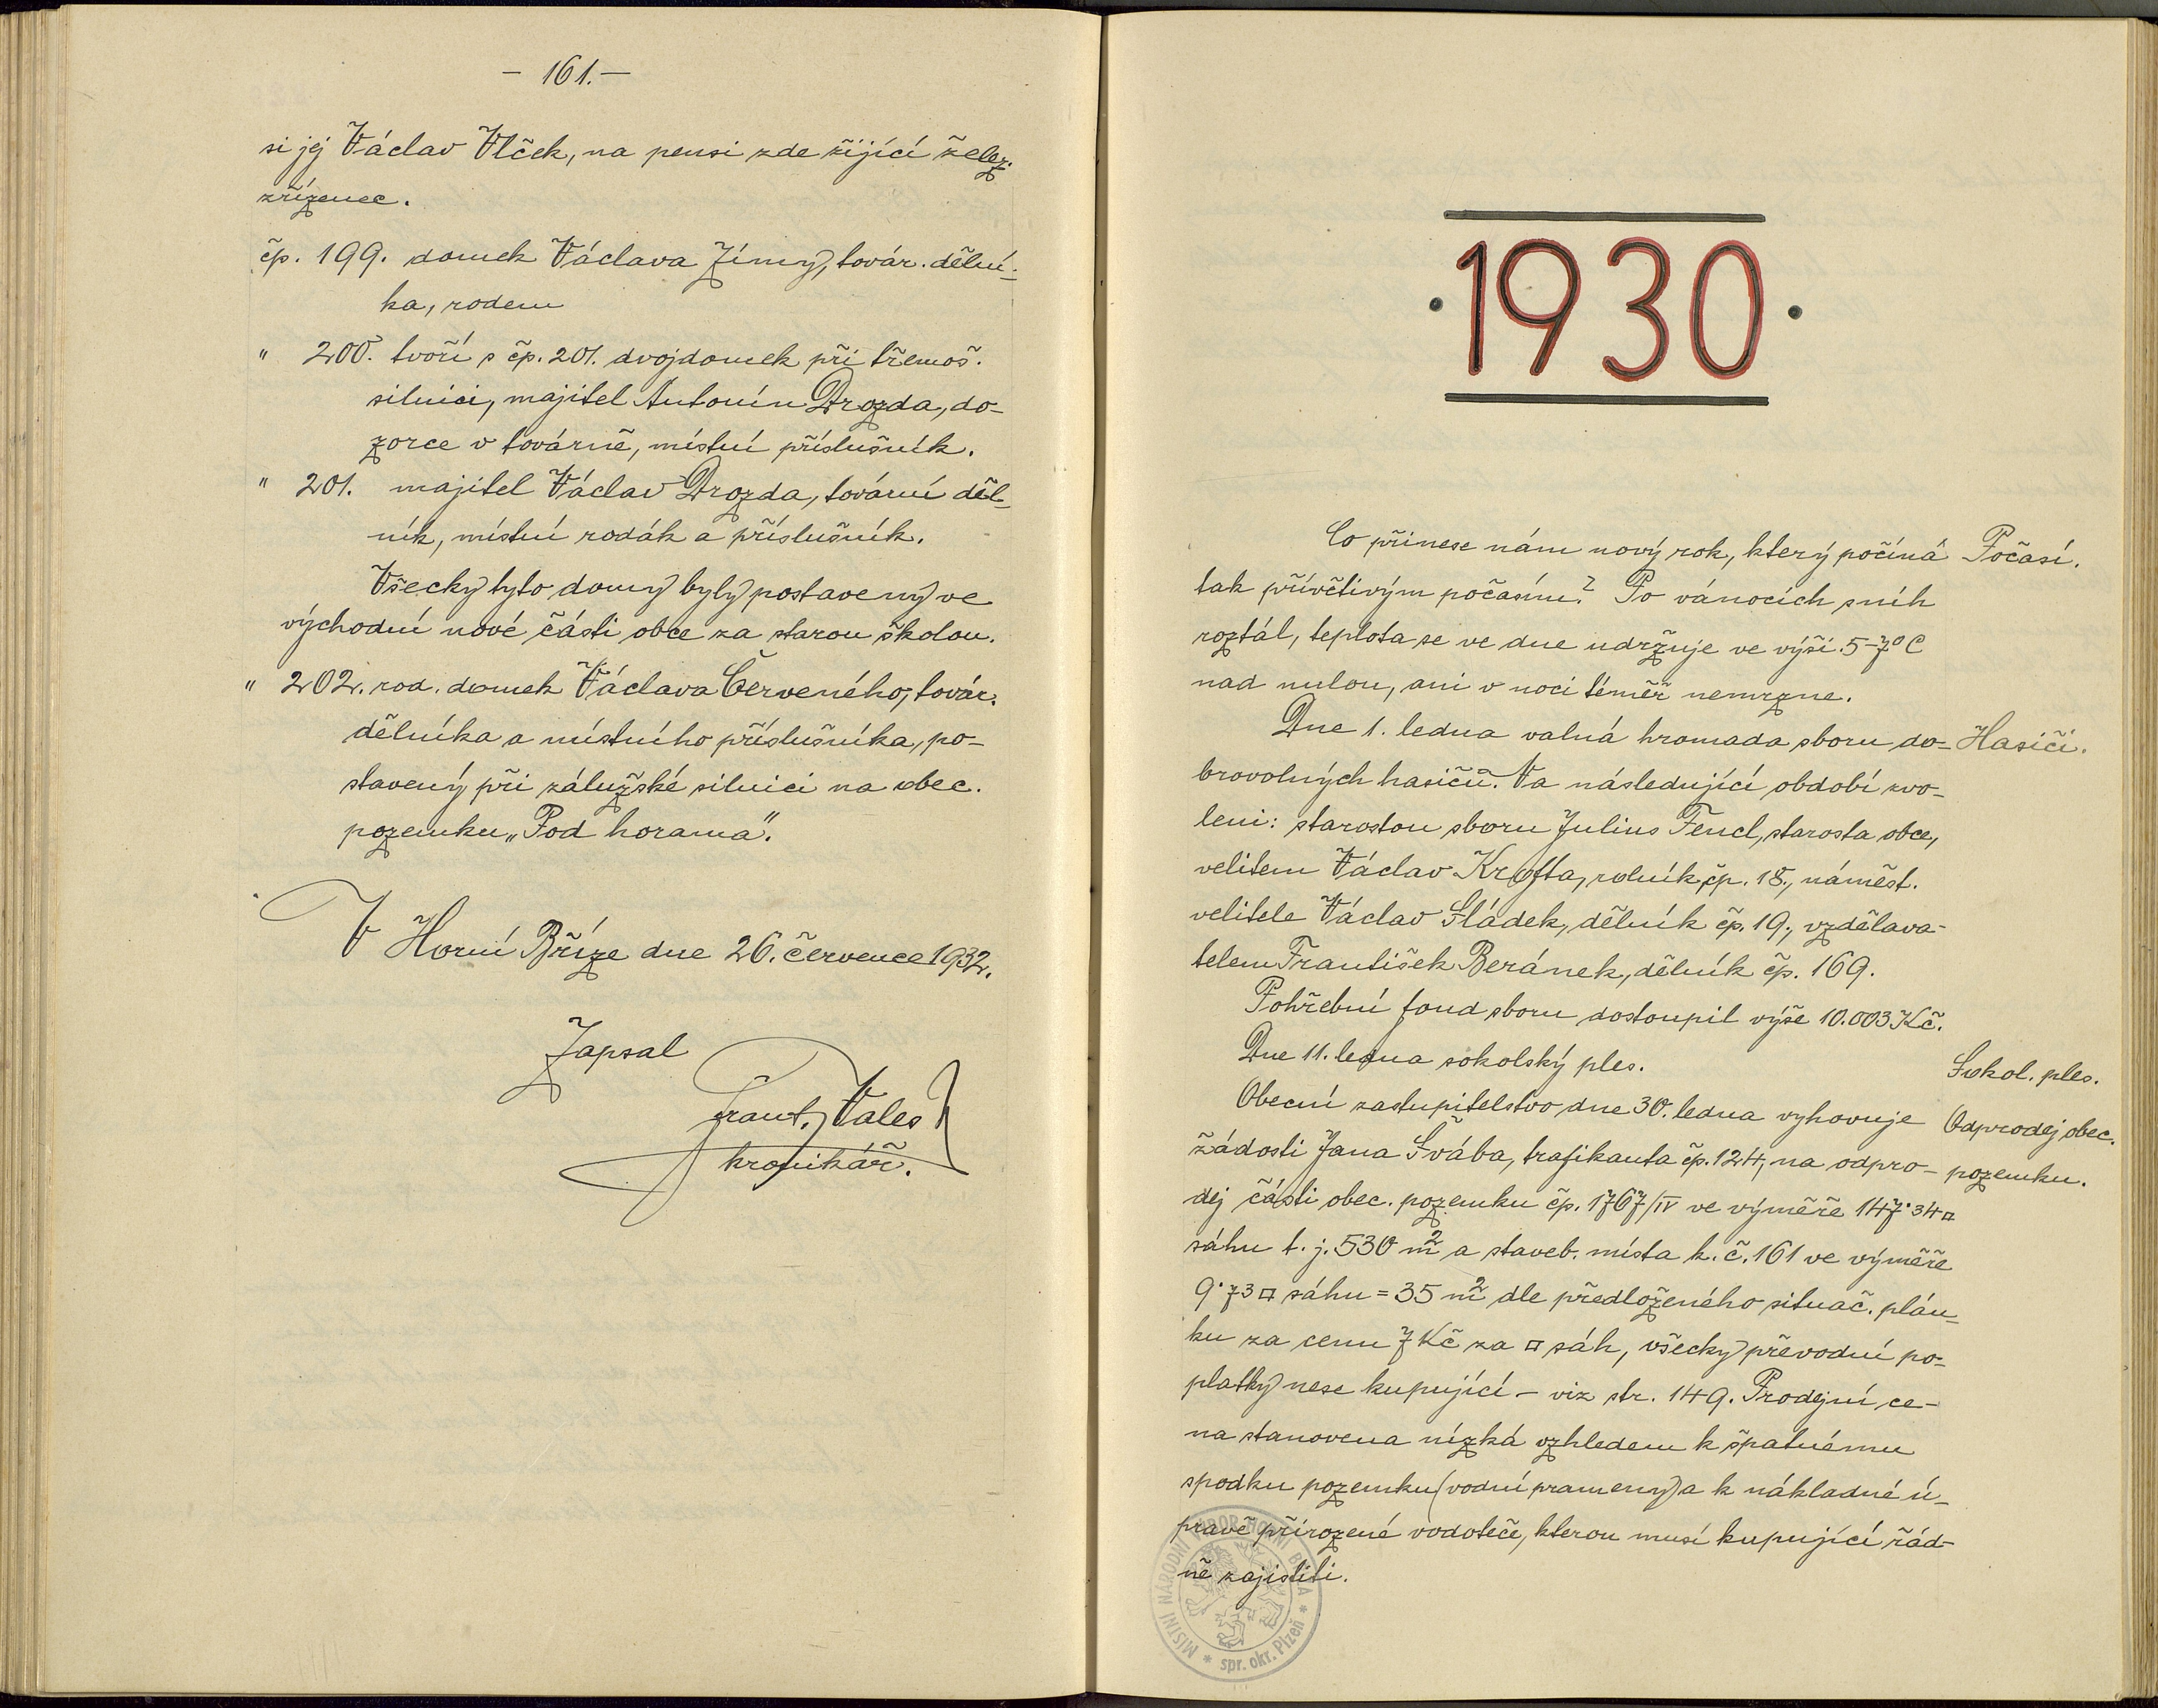 - 161. -
si jej Václav Vlček, na pensi zde žijící želez.
zřízenec.
čp. 199. domek Václava Zímy, továr. dělní-
ka, rodem
" 200. tvoří s čp. 201. dvojdomek při třemoš.
silnici, majitel Antonín Drozda, do-
zorce v továrně, místní příslušník.
" 201. majitel Václav Drozda, tovární děl-
ník, místní rodák a příslušník.
Všecky tyto domy byly postaveny ve
východní nové části obce za starou školou.
" 202. rod. domek Václava Červeného, továr.
dělníka a místního příslušníka, po-
stavený při zálužské silnici na obec.
pozemku „Pod horama".
V Horní Bříze dne 26. července 1932.
Zapsal
Frant. Vales
kronikář.
·1930·
Co přinese nám nový rok, který počíná
Počasí.
tak přívětivým počasím? Po vánocích sníh
roztál, teplota se ve dne udržuje ve výši 5-7° C
nad nulou, ani v noci téměř nemrzne.
Dne 1. ledna valná hromada sboru do-
Hasiči.
brovolných hasičů. Na následující období zvo-
leni: starostou sboru Julius Fencl, starosta obce,
velitem Václav Krofta, rolník čp. 18., náměst.
velitele Václav Sládek, dělník čp. 19., vzdělava-
telem František Beránek, dělník čp. 169.
Pohřební fond sboru dostoupil výše 10.003 Kč.
Dne 11. ledna sokolský ples.
Sokol. ples.
Obecní zastupitelstvo dne 30. ledna vyhovuje
Odprodej obec.
žádosti Jana Švába, trafikanta čp. 124, na odpro-
pozemku.
dej části obec. pozemku čp. 1767/IV ve výměře 147·34 □
sáhu t. j. 530 m² a staveb. místa k. č. 161 ve výměře
9·73 □ sáhu = 35 m² dle předloženého situač. plán-
ku za cenu 7 Kč za □ sáh, všecky převodní po-
platky nese kupující - viz str. 149. Prodejní ce-
na stanovena nízká vzhledem k špatnému
spodku pozemku (vodní prameny) a k nákladné ú-
pravě přirozené vodoteče, kterou musí kupující řád-
ně zajistiti.
MÍSTNÍ NÁRODNÍ VÝBOR HORNÍ BŘÍZA * spr. okr. Plzeň *